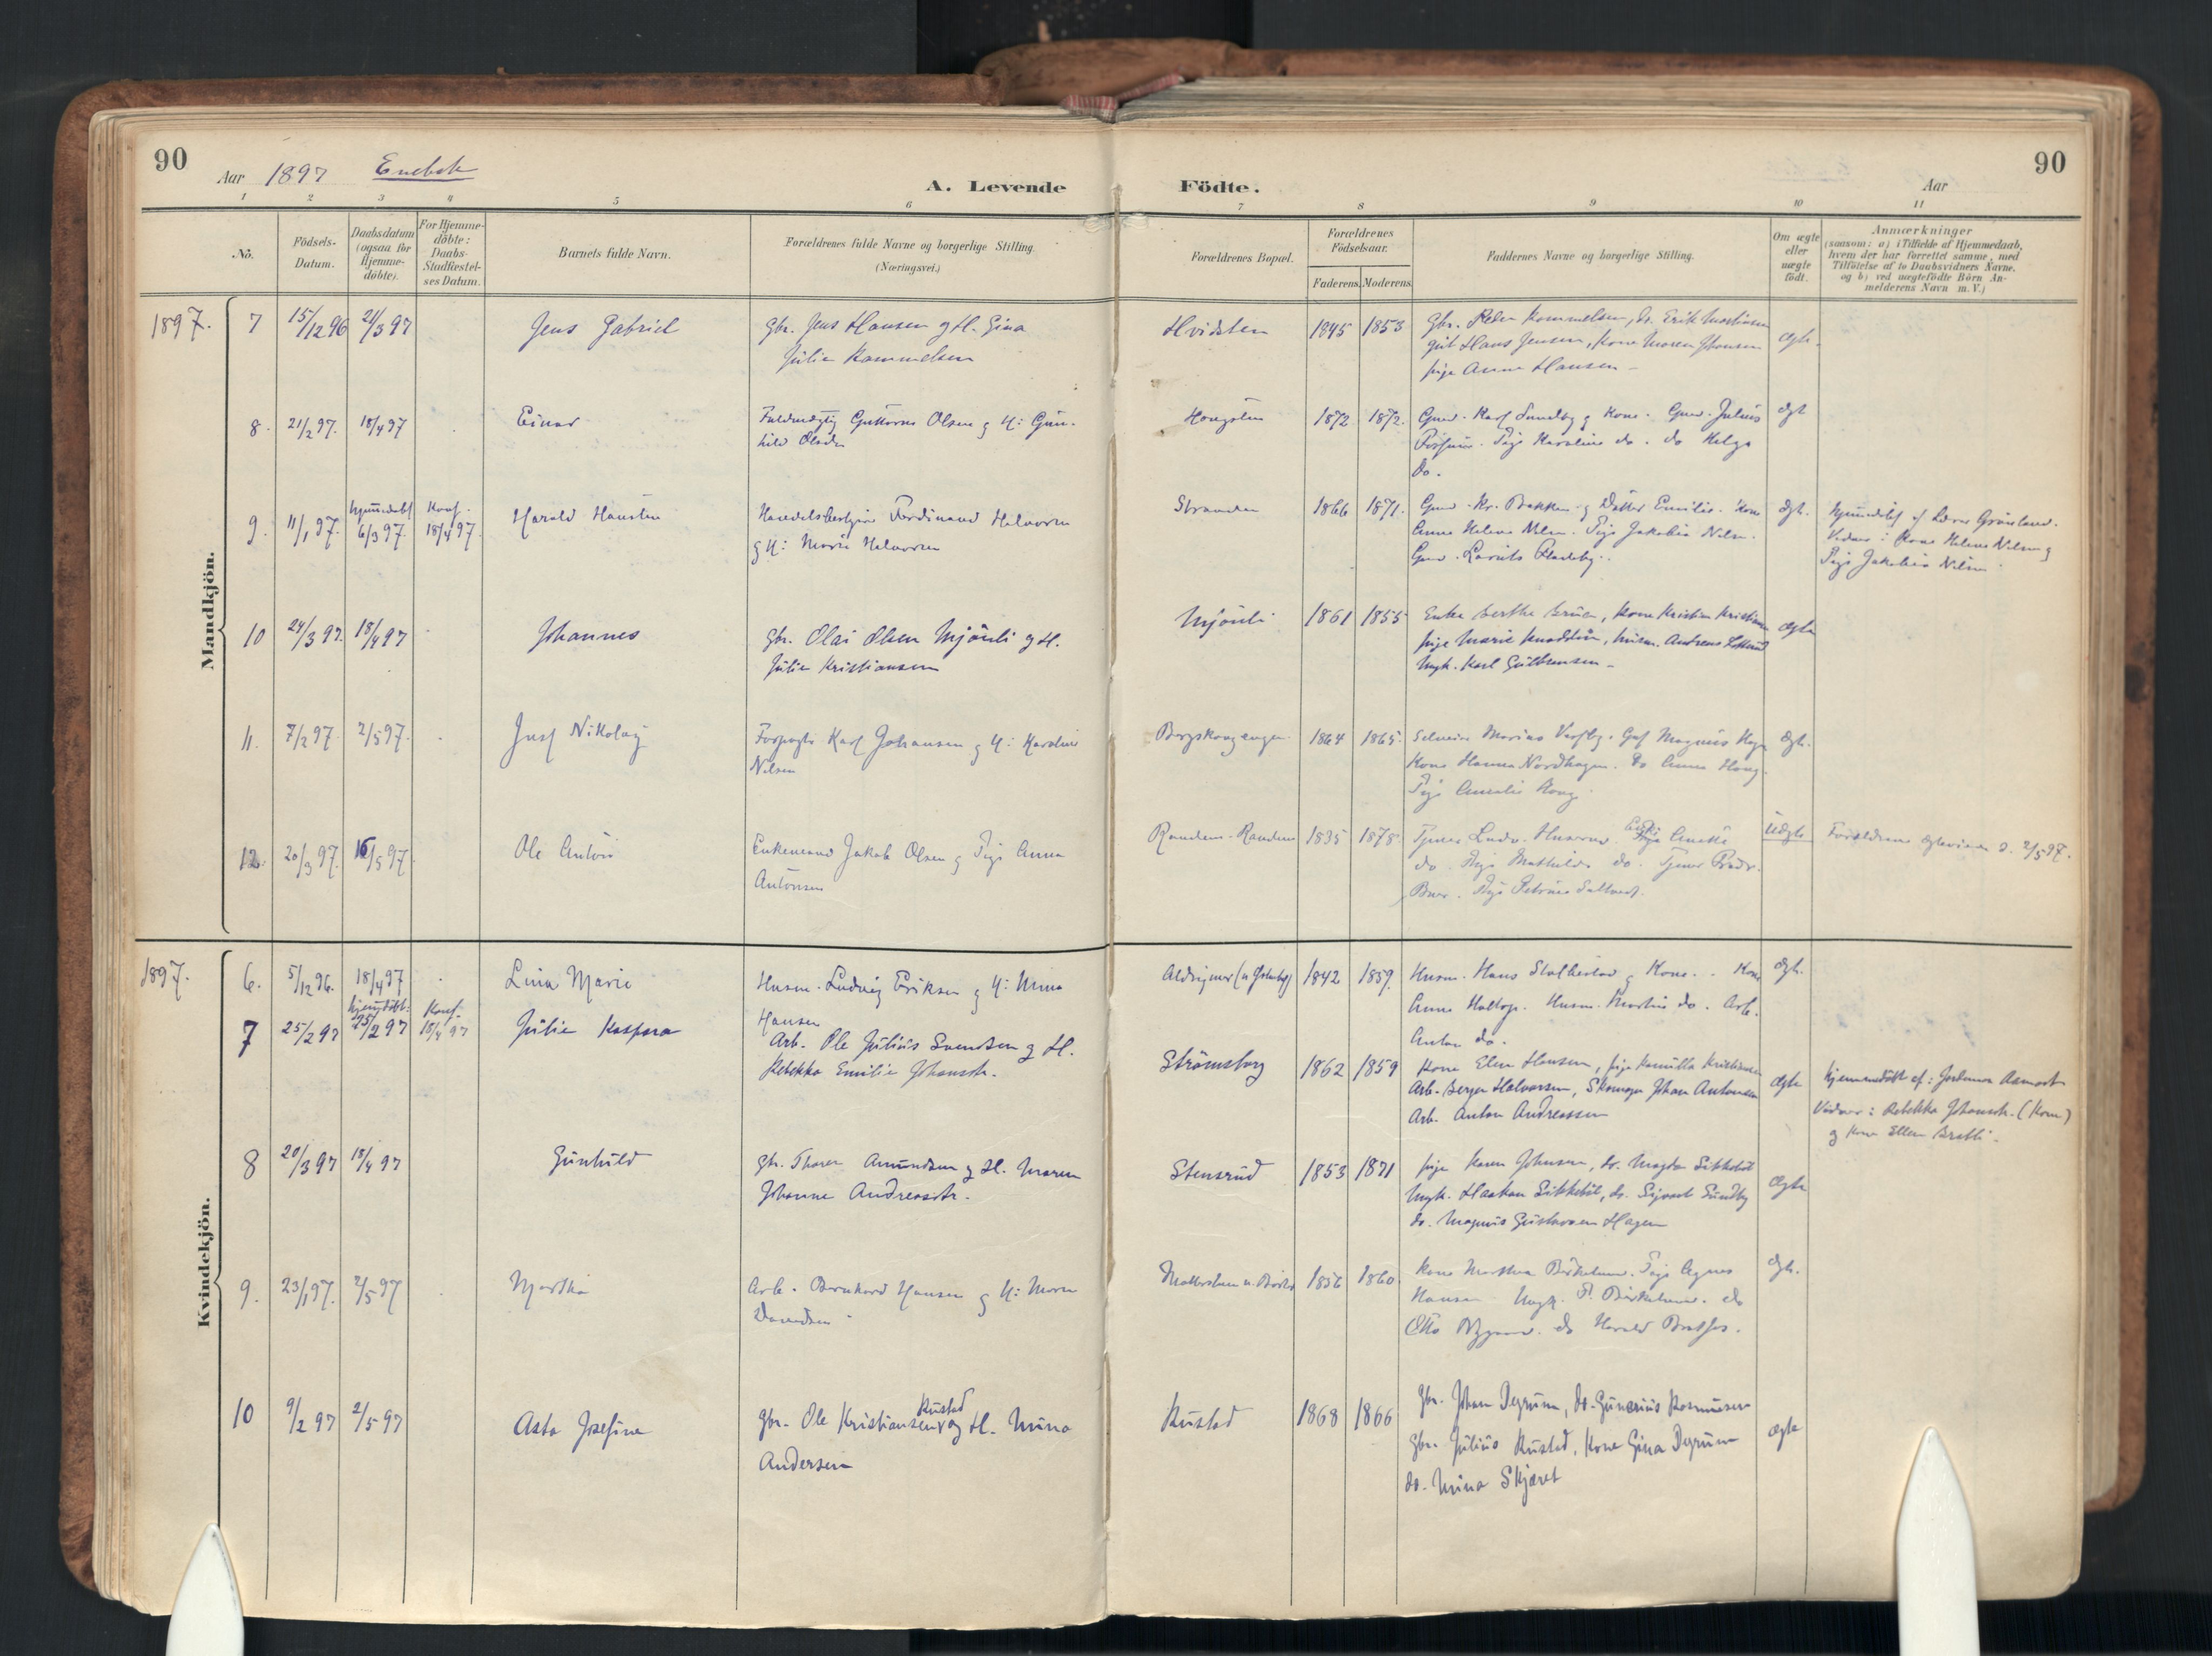 90
Aar 1897 Enebak
A. Levende Födte.
90
Aar
1 2 3 4 5 6 7 8 9 10 11
No.
Födsels-
Datum.
Daabsdatum
(ogsaa for
Hjemme-
döbte).
For Hjemme-
döbte:
Daabs-
Stadfæstel-
ses Datum.
Barnets fulde Navn.
Forældrenes fulde Navne og borgerlige Stilling.
(Næringsvei.)
Forældrenes Bopæl.
Forældrenes
Födselsaar.
Faderens. Moderens.
Faddernes Navne og borgerlige Stilling.
Om ægte
eller
uægte
födt.
Anmærkninger
(saasom: a) i Tilfælde af Hjemmedaab,
hvem der har forrettet samme, med
Tilföielse af to Daabsvidners Navne,
og b) ved uægtefödte Börn An-
melderens Navn m. V.)
Mandkjön.
1897. 7 15/12 96 21/3 97 Jens Gabriel
Gbr. Jens Hansen og H. Gina
Julie Rammelsen
Hvidsten 1845 1853
Gbr. Peder Rammelsen, do. Erik Martinsen
Gut Hans Jensen, Kone Maren Johansen
pige Anna Hansen
ægte
8. 21/2 97. 18/4 97 Einar
Fuldmægtig Guttorm Olsen og H: Gun-
hild Olsdr.
1872 1872.
Gmd. Karl Sundby og Kone. Gmd. Julius
Pige Karoline do. do Helga
do.
ægt
9. 11/1 97. hjemmedøbt 6/3 97. Konf. 18/4 97. Harald Hansten
Handelsbestyrer Ferdinand Halvorsen
og H: Marie Halvorsen
Stranden 1866 1871.
Gmd. Kr. Bakken og Datter Emilie. Kone
Anne Helene Nilsen. Pige Jakobine Nilsen.
Gmd. Laurits Fladeby.
ægt.
Hjemmedøbt af Lærer Grønland.
Vidner: Kone Helene Nilsen og
Pige Jakobine Nilsen
10 24/3 97. 18/4 97 Johannes
Gbr. Olai Olsen Mjönli og H.
Julie Kristiansen
Mjönli 1861 1855
Enke Berthe Bruen, Kone Kristine Kristiansen
pige Marie
Ungk. Karl Gulbrandsen
ægte
11. 7/2 97. 2/5 97. Nikolay
Forpagter Karl Johansen og H: Karoline
Nilsen
1864 1865.
Kone Hanna Nordhagen. do Anna Haug.
Pige Amalie Haug.
ægt.
12. 20/3 97. 16/5 97. Ole Anton
Enkemand Jakob Olsen og Pige Anna
Antonsen
1835 1878.
Tjener Ludv.
do. Pige Mathilde do. Tjener
Pige
Uægte
Forældrene ægteviede d. 2/5 97.
Kvindekjön.
1897. 6. 5/12 96. 18/4 97 Lina Marie
Husm. Ludvig Eriksen og H: Mina
Hansen
1842 1859.
Husm. Hans og Kone. Kone
Anne Husm. Martin do. Arb.
Anton do.
ægt.
7 25/2 97 hjemdöbt: 25/2 97 Konf. 18/4 97 Julie Kaspara
Arb. Ole Julius Svendsen og H.
Rebekka Emilie Johansdtr.
Strömsborg 1862 1859
Kone Elen Hansen, pige Kamilla Kristiansen
Arb. Berger Halvorsen, Skomager Johan Antonsen
Arb. Anton Andreassen
ægte
hjemmedöbt af: Jordmor
Vidner: Rebekka Johansdtr. (Kone)
og Kone Ellen
8 20/3 97 18/4 97 Gunhild
Gbr. Thorer Amundsen og H. Maren
Johanne Andreasdtr.
Stensrud 1853 1871
pige Karen Johnsen, do. Magda Sikkeböl
Ungk. Haakon Sikkeböl, do. Sigvart Sundby
do. Magnus Gustavsen Hagen
ægte
9. 23/1 97. 2/5 97 Martha
Arb. Bernhard Hansen og H: Maren
Davidsen
1856 1860.
Kone Marthea Pige Agnes
Hansen Ungk. do
Otto do Harald
ægt.
10 9/2 97 2/5 97 Asta Josefine
Gbr. Ole Kristiansen Rustad og H. Mina
Andersen
Rustad 1868 1866
Gbr. Johan Degrum, do. Gunerius Rasmussen
Gbr. Julius Rustad, Kone Gina Degrum
do. Mina Skjæret
ægte